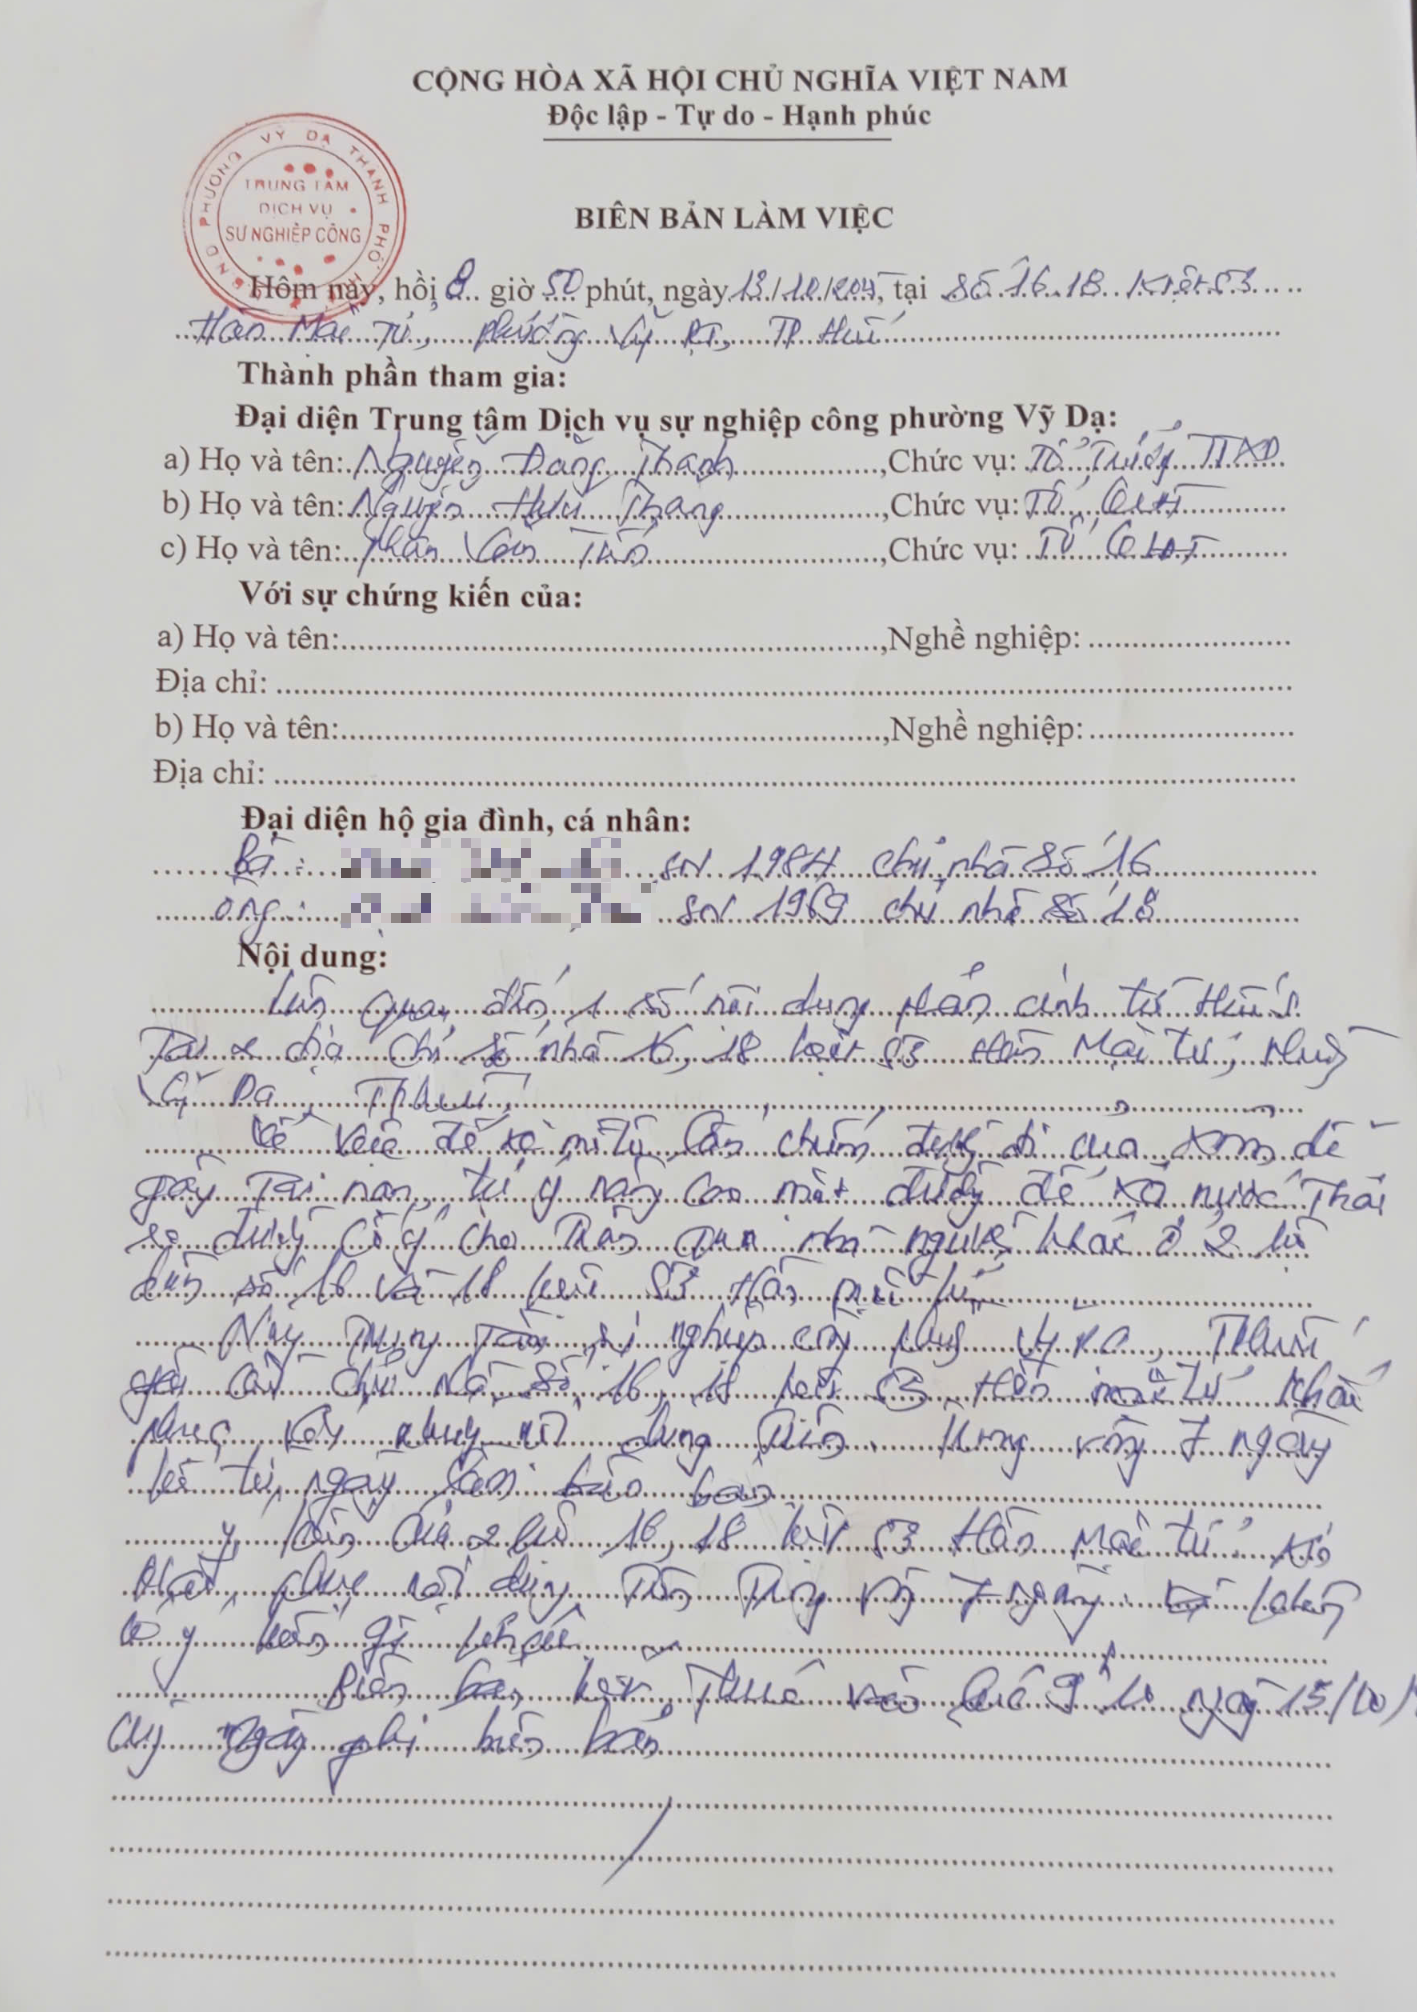 CỘNG HÒA XÃ HỘI CHỦ NGHĨA VIỆT NAM
Độc lập - Tự do - Hạnh phúc
UBND PHƯỜNG VỸ DẠ THÀNH PHỐ HUẾ
TRUNG TÂM
DỊCH VỤ
SỰ NGHIỆP CÔNG
BIÊN BẢN LÀM VIỆC
Hôm nay, hồi 8 giờ 50 phút, ngày 13/10/2025, tại Số 16.18 Kiệt 53
Hàn Mặc Tử, phường Vỹ Dạ, TP Huế
Thành phần tham gia:
Đại diện Trung tâm Dịch vụ sự nghiệp công phường Vỹ Dạ:
a) Họ và tên: Nguyễn Đăng Thanh, Chức vụ: Tổ Trưởng
b) Họ và tên: Nguyễn Hữu Thang, Chức vụ: Tổ QLĐT
c) Họ và tên: Phan Văn, Chức vụ: Tổ QLĐT
Với sự chứng kiến của:
a) Họ và tên:, Nghề nghiệp:
Địa chỉ:
b) Họ và tên:, Nghề nghiệp:
Địa chỉ:
Đại diện hộ gia đình, cá nhân:
Bà: SN 1984 chủ nhà số 16
Ông: SN 1969 chủ nhà số 18
Nội dung:
Liên quan đến 1 số nội dung phản ánh từ Huế S
Tại 2 địa chỉ số nhà 16, 18 kiệt 53 Hàn Mặc Tử, phường
Vỹ Dạ, TP Huế
Về việc để xe lấn chiếm đường đi của xóm dễ
gây Tai nạn, tự ý nâng cao mặt đường để xả nước Thải
đường cố ý cho Tràn qua nhà người khác ở 2 hộ
dân số 16 và 18 kiệt 53 Hàn Mặc Tử
Nay Trung Tâm sự nghiệp công phường Vỹ Dạ, TP Huế
yêu cầu chủ nhà số 16, 18 kiệt 53 Hàn Mặc Tử khắc
phục nội dung Trên. Trong vòng 7 ngày
kể từ ngày làm biên bản
Ý kiến của 2 hộ 16, 18 kiệt 53 Hàn Mặc Tử: xin
khắc phục nội dung Trên Trong vòng 7 ngày. không
có ý kiến gì khác
Biên bản kết Thúc vào lúc 9h10 ngày 13/10/
cùng ngày ghi biên bản